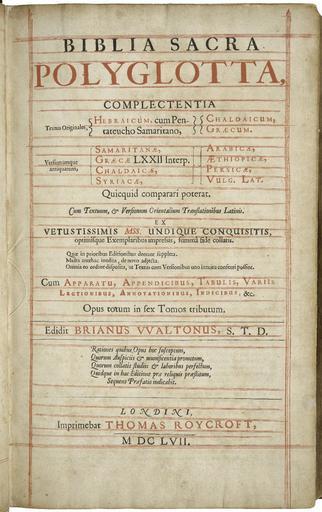 BIBLIA SACRA
POLYGLOTTA,
COMPLECTENTIA
Textus Originales, { HEBRAICUM, cum Pen- } { CHALDAICUM,
tateucho Samaritano, GRÆCUM.
Versionumque antiquarum, { SAMARITANÆ, ARABICÆ,
GRÆCÆ LXXII Interp. ÆTHIOPICÆ,
CHALDAICÆ, PERSICÆ,
SYRIACÆ, VULG. LAT.
Quicquid comparari poterat.
Cum Textuum, & Versionum Orientalium Translationibus Latinis.
EX
VETUSTISSIMIS MSS. UNDIQUE CONQUISITIS,
optimisque Exemplaribus impressis, summâ fide collatis.
Quæ in prioribus Editionibus deerant suppleta.
Multa antehac inedita, de novo adjecta.
Omnia eo ordine disposita, ut Textus cum Versionibus uno intuitu conferri possint.
Cum APPARATU, APPENDICIBUS, TABULIS, VARIIS
LECTIONIBUS, ANNOTATIONIBUS, INDICIBUS, &c.
Opus totum in sex Tomos tributum.
Edidit BRIANUS VVALTONUS, S. T. D.
Rationes quibus Opus hoc susceptum,
Quorum Auspiciis & munificentia promotum,
Quorum collatis studiis & laboribus perfectum,
Quidque in hac Editione præ reliquis præstitum,
Sequens Præfatio indicabit.
LONDINI,
Imprimebat THOMAS ROYCROFT,
M DC LVII.